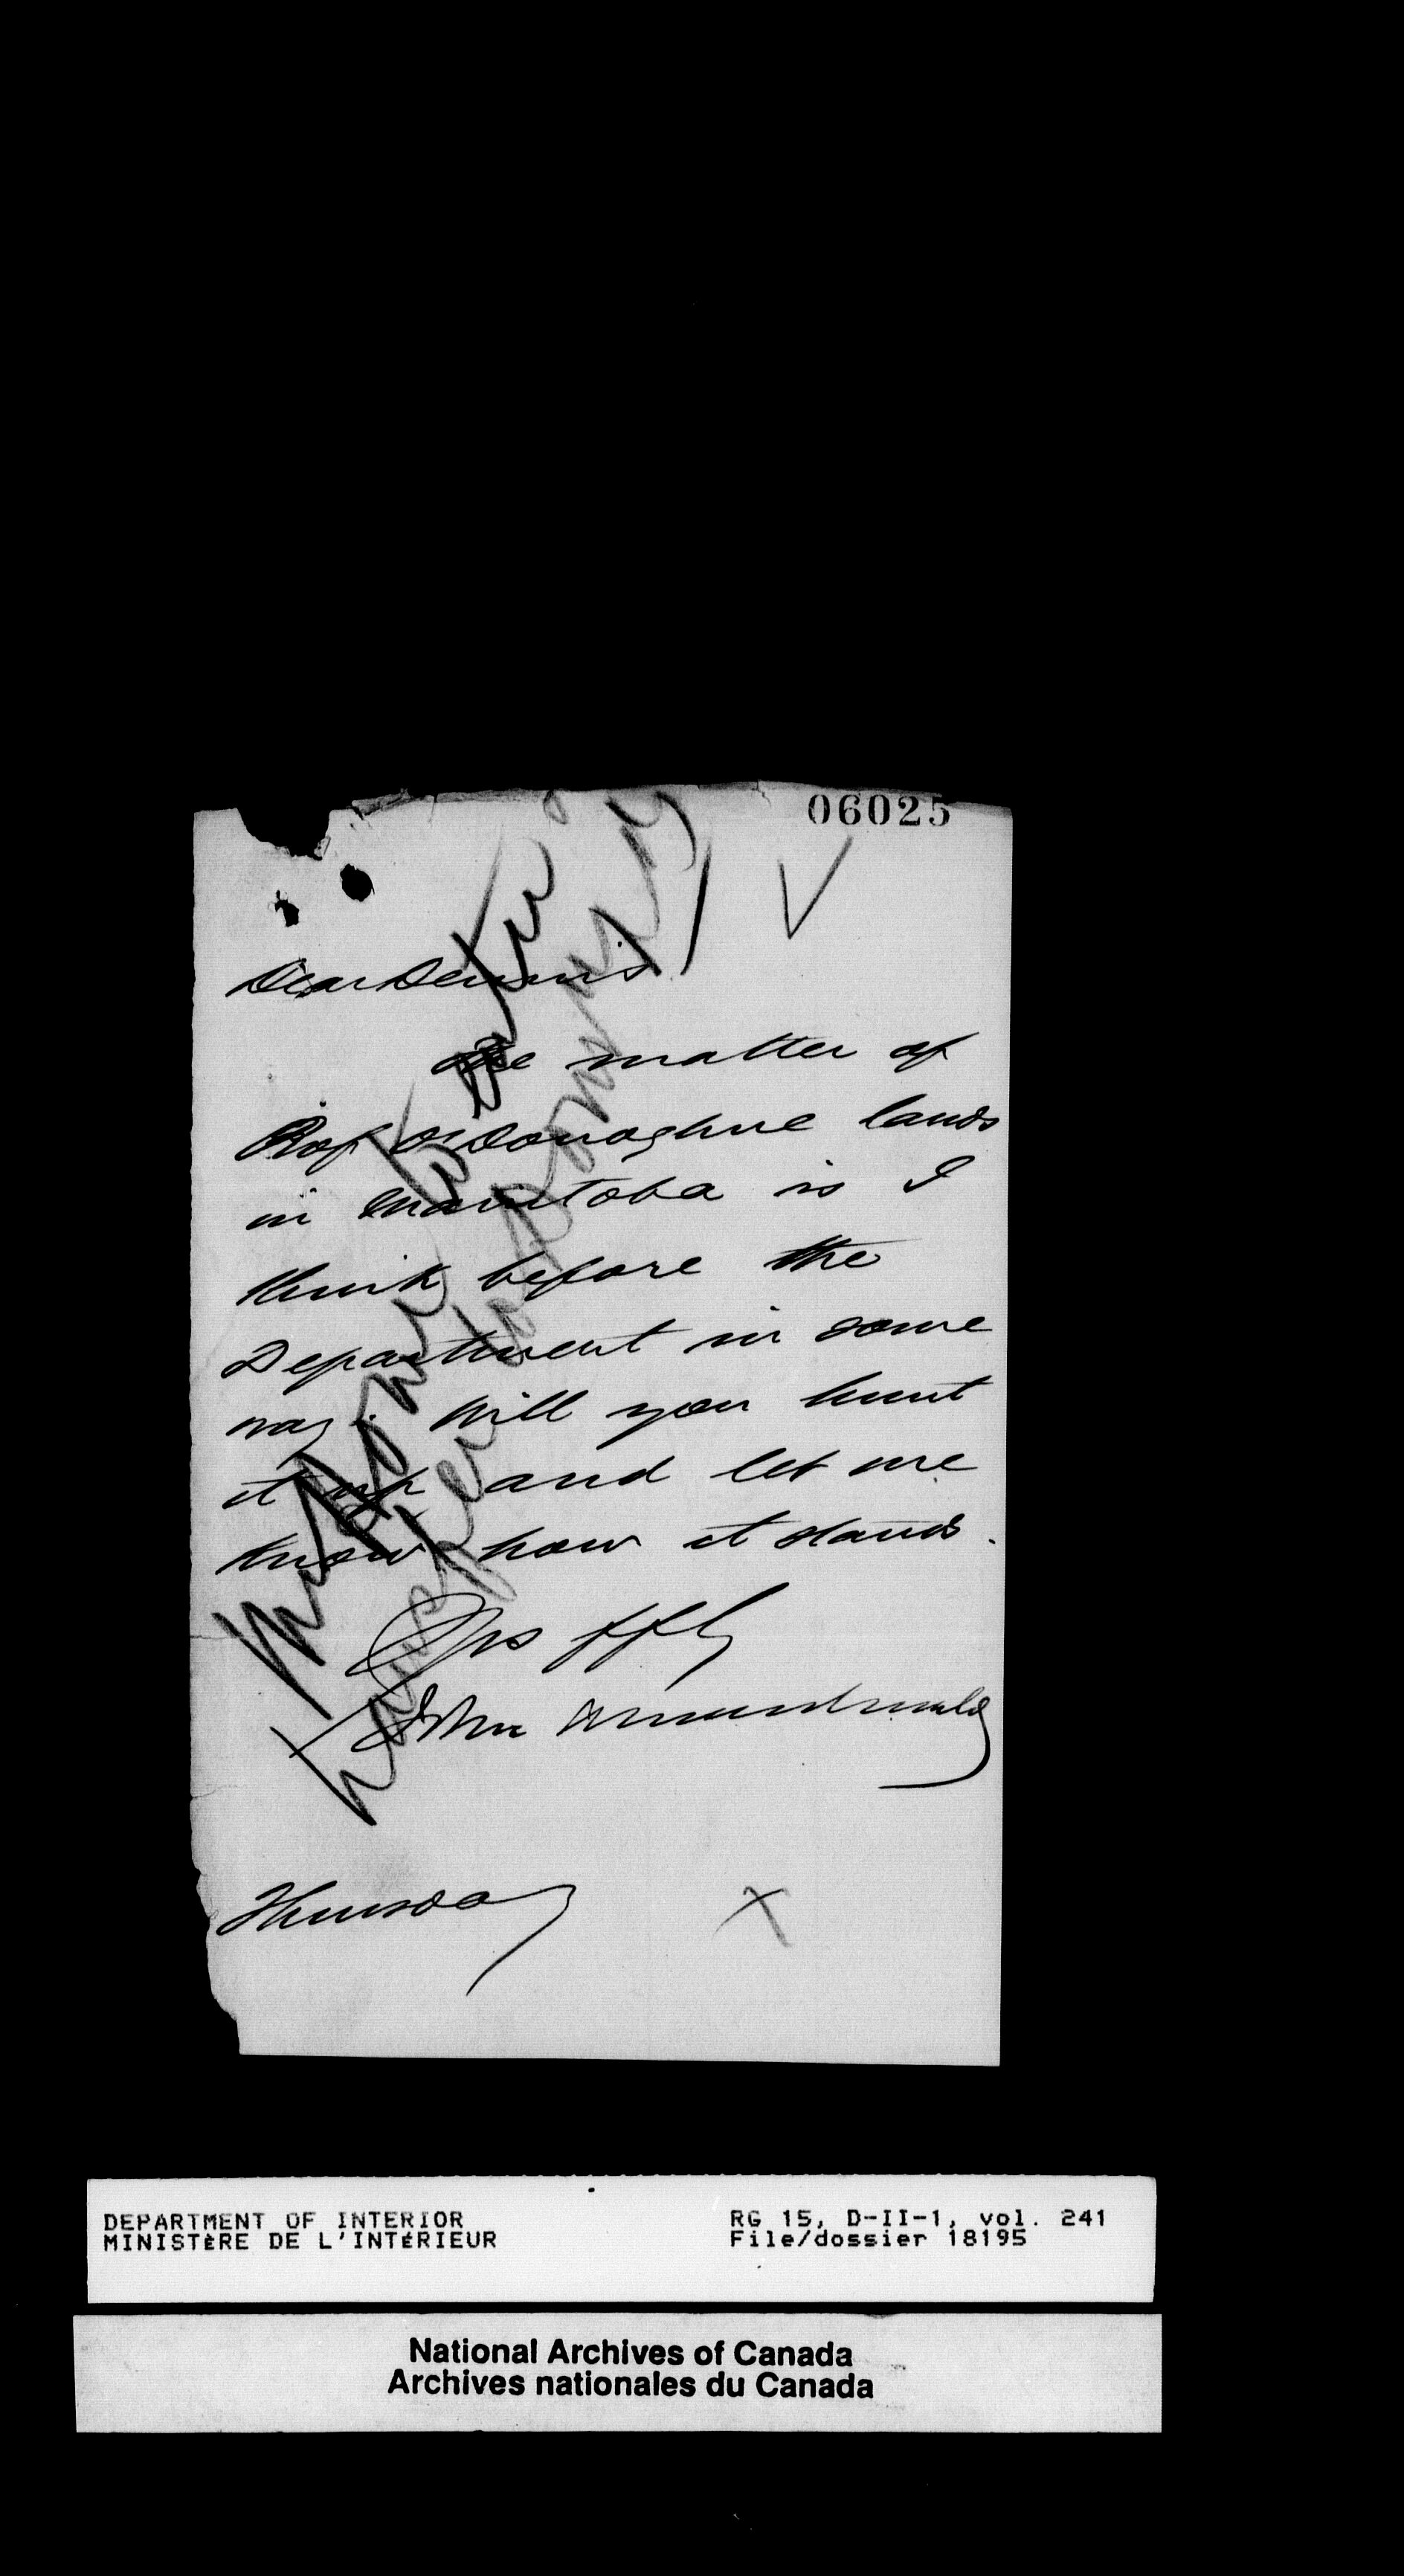 06025
Dear Dennis
The matter of
Prof O'Donoghue lands
in Manitoba is I
think before the
Department in some
way. Will you hunt
it up and let me
know how it stands.
Yrs ffly
John A Macdonald
Thursday
X
DEPARTMENT OF INTERIOR
MINISTÈRE DE L'INTÉRIEUR
RG 15, D-II-1, vol. 241
File/dossier 18195
National Archives of Canada
Archives nationales du Canada